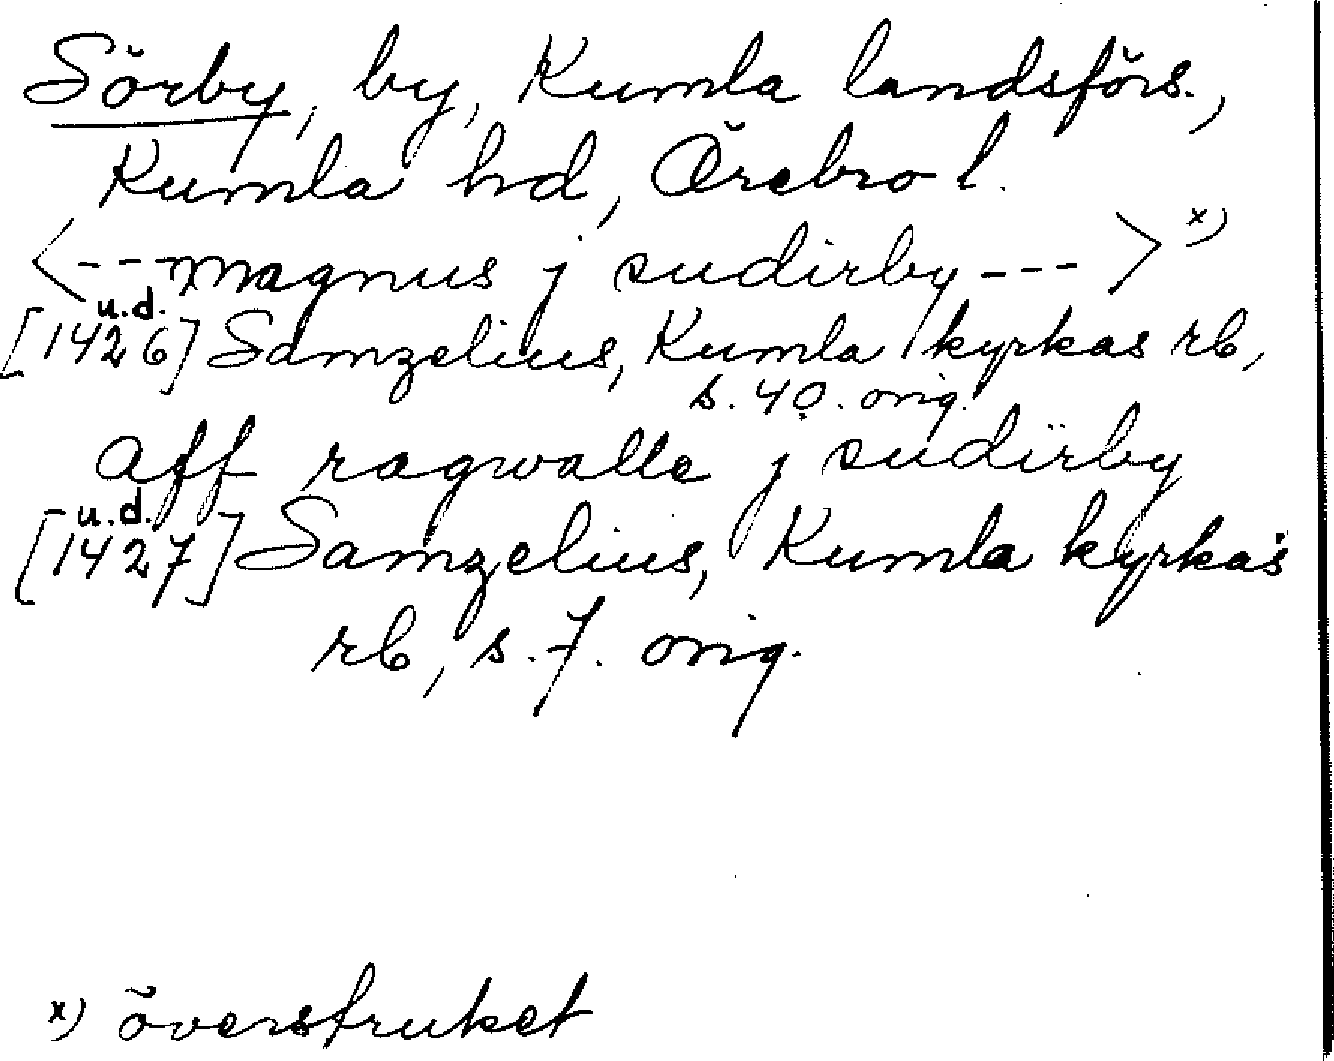 Sörby, by, Kumla landsförs.,
Kumla hd, Örebro l.
<---magnus j sudirby--->x)
u.d.
[1426] Samzelius, Kumla kyrkas rb,
s. 40. orig.
aff ragwalle j sudirby
u.d.
[1427] Samzelius, Kumla kyrkas
rb, s. 7. orig.
x) överstruket